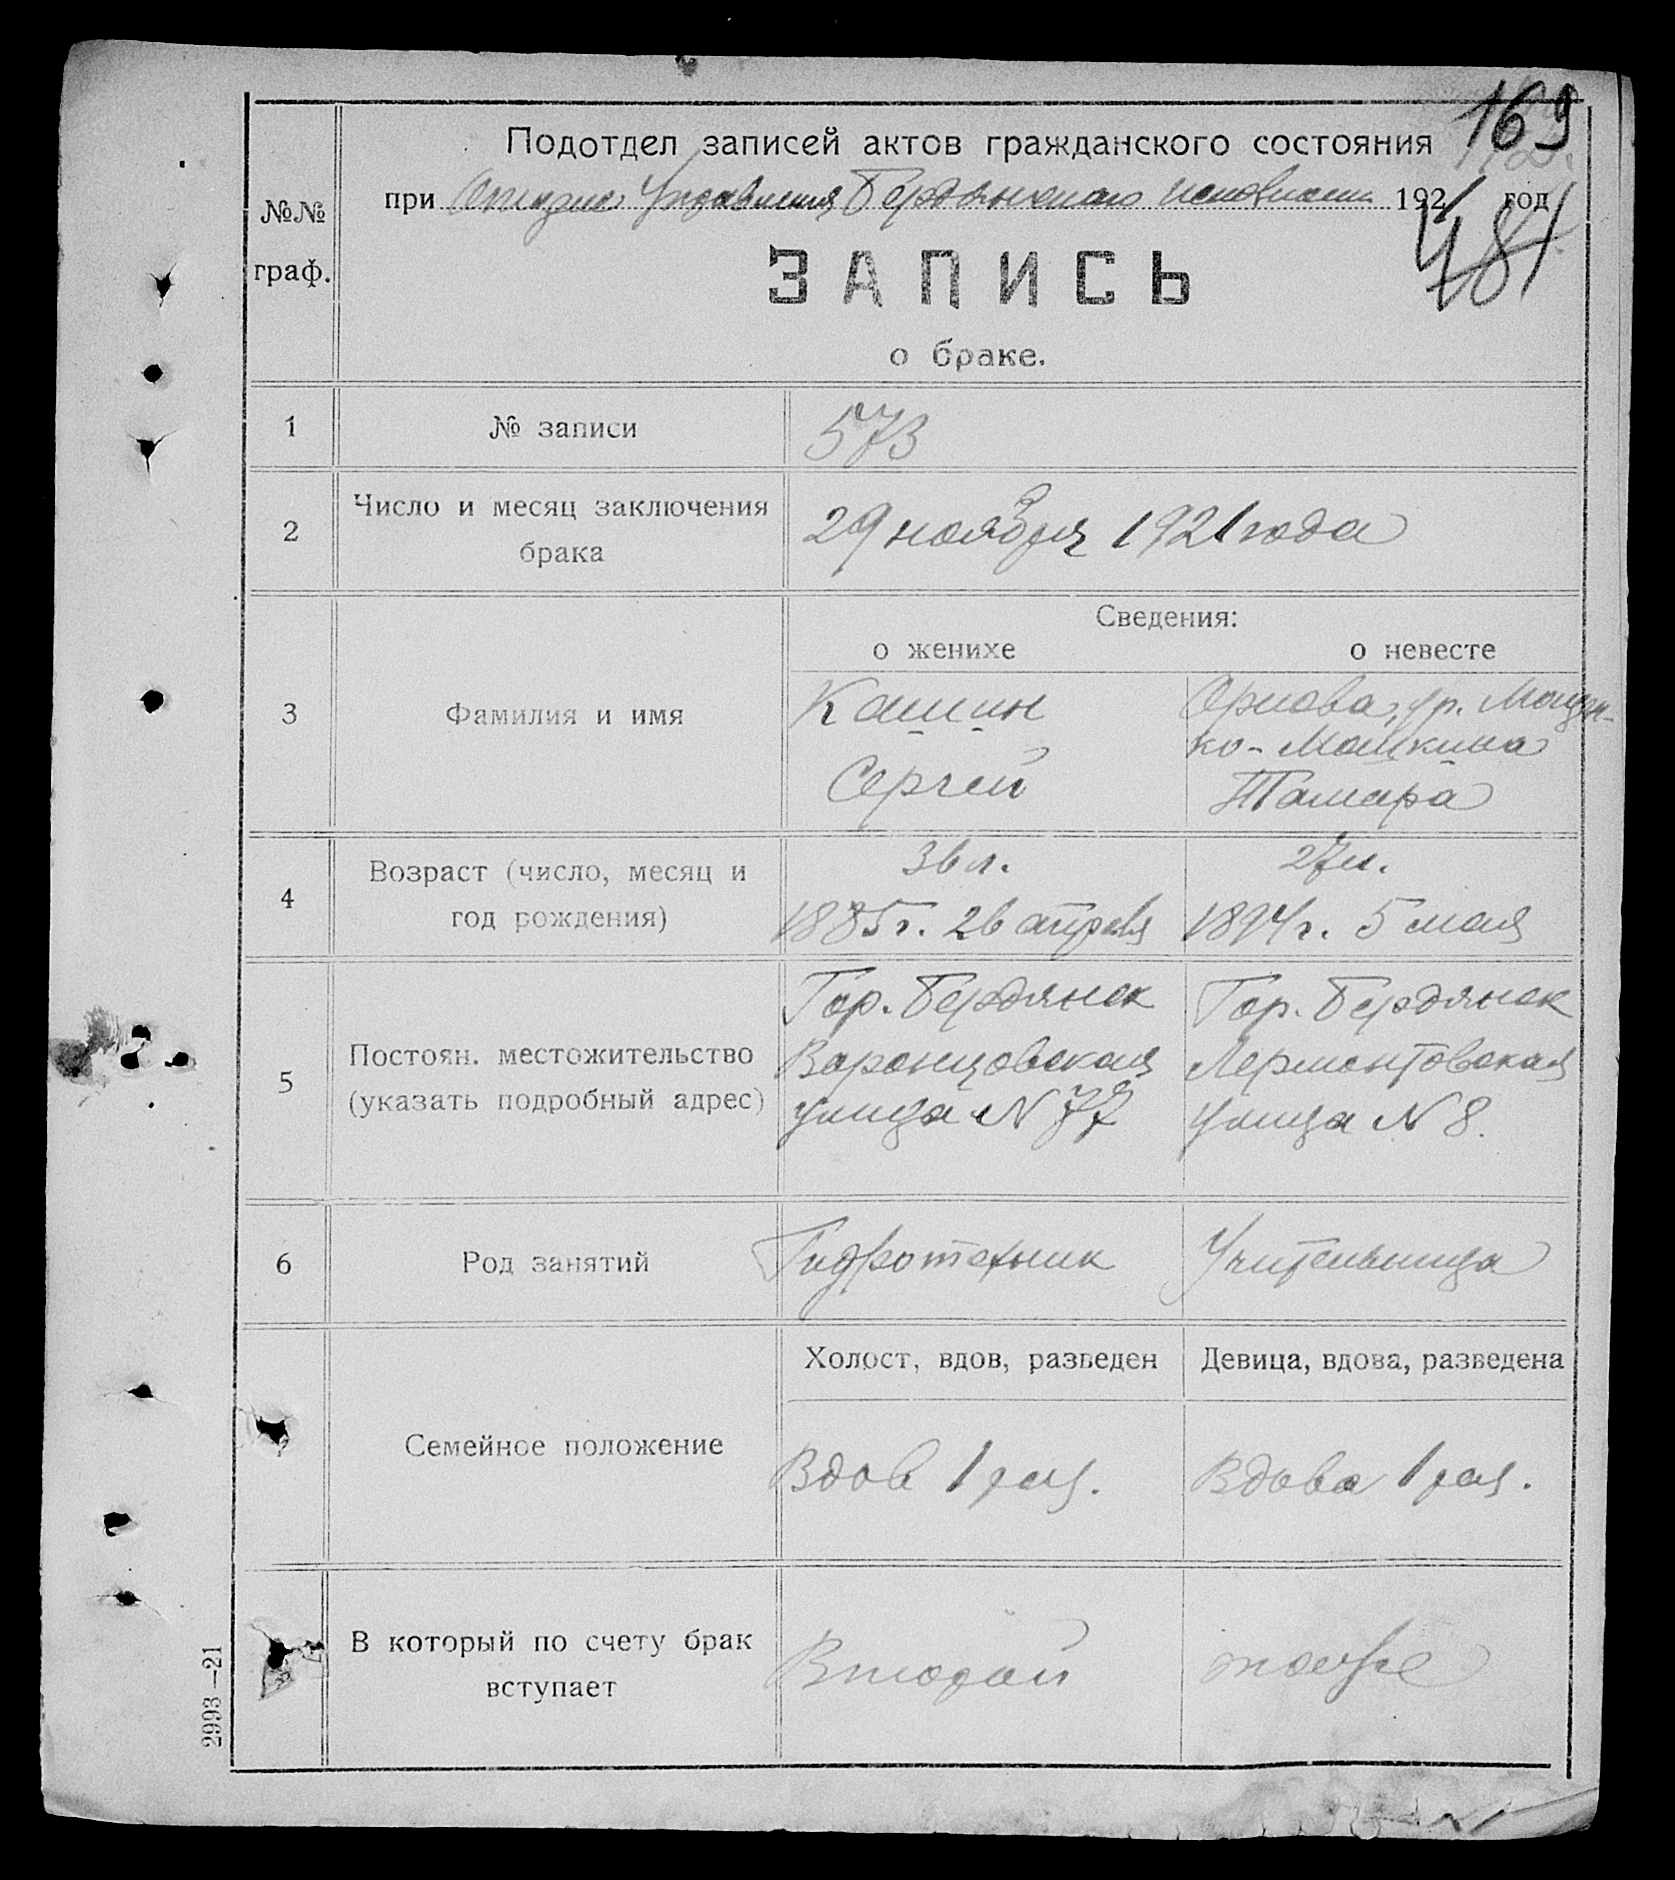 169
Подотдел записей актов гражданского состояния
при Отделе Управления Бердянского Исполкома 1921 год
481
№№
граф.
ЗАПИСЬ
о браке.
1
№ записи
573
2
Число и месяц заключения
брака
29 ноября 1921 года
Сведения:
о женихе
о невесте
3
Фамилия и имя
Кашин
Сергей
Орлова, ур.
ко-Машкина
Тамара
4
Возраст (число, месяц и
год рождения)
36 л.
1885 г. 26 апреля
27 л.
1894 г. 5 мая
5
Постоян. местожительство
(указать подробный адрес)
Гор. Бердянск
Воронцовская
улица N 77
Гор. Бердянск
Лермонтовская
улица N 8.
6
Род занятий
Гидротехник
Учительница
7
Семейное положение
Холост, вдов, разведен
Девица, вдова, разведена
Вдов 1 раз.
Вдова 1 раз.
В который по счету брак
вступает
Второй
тоже
2993—21